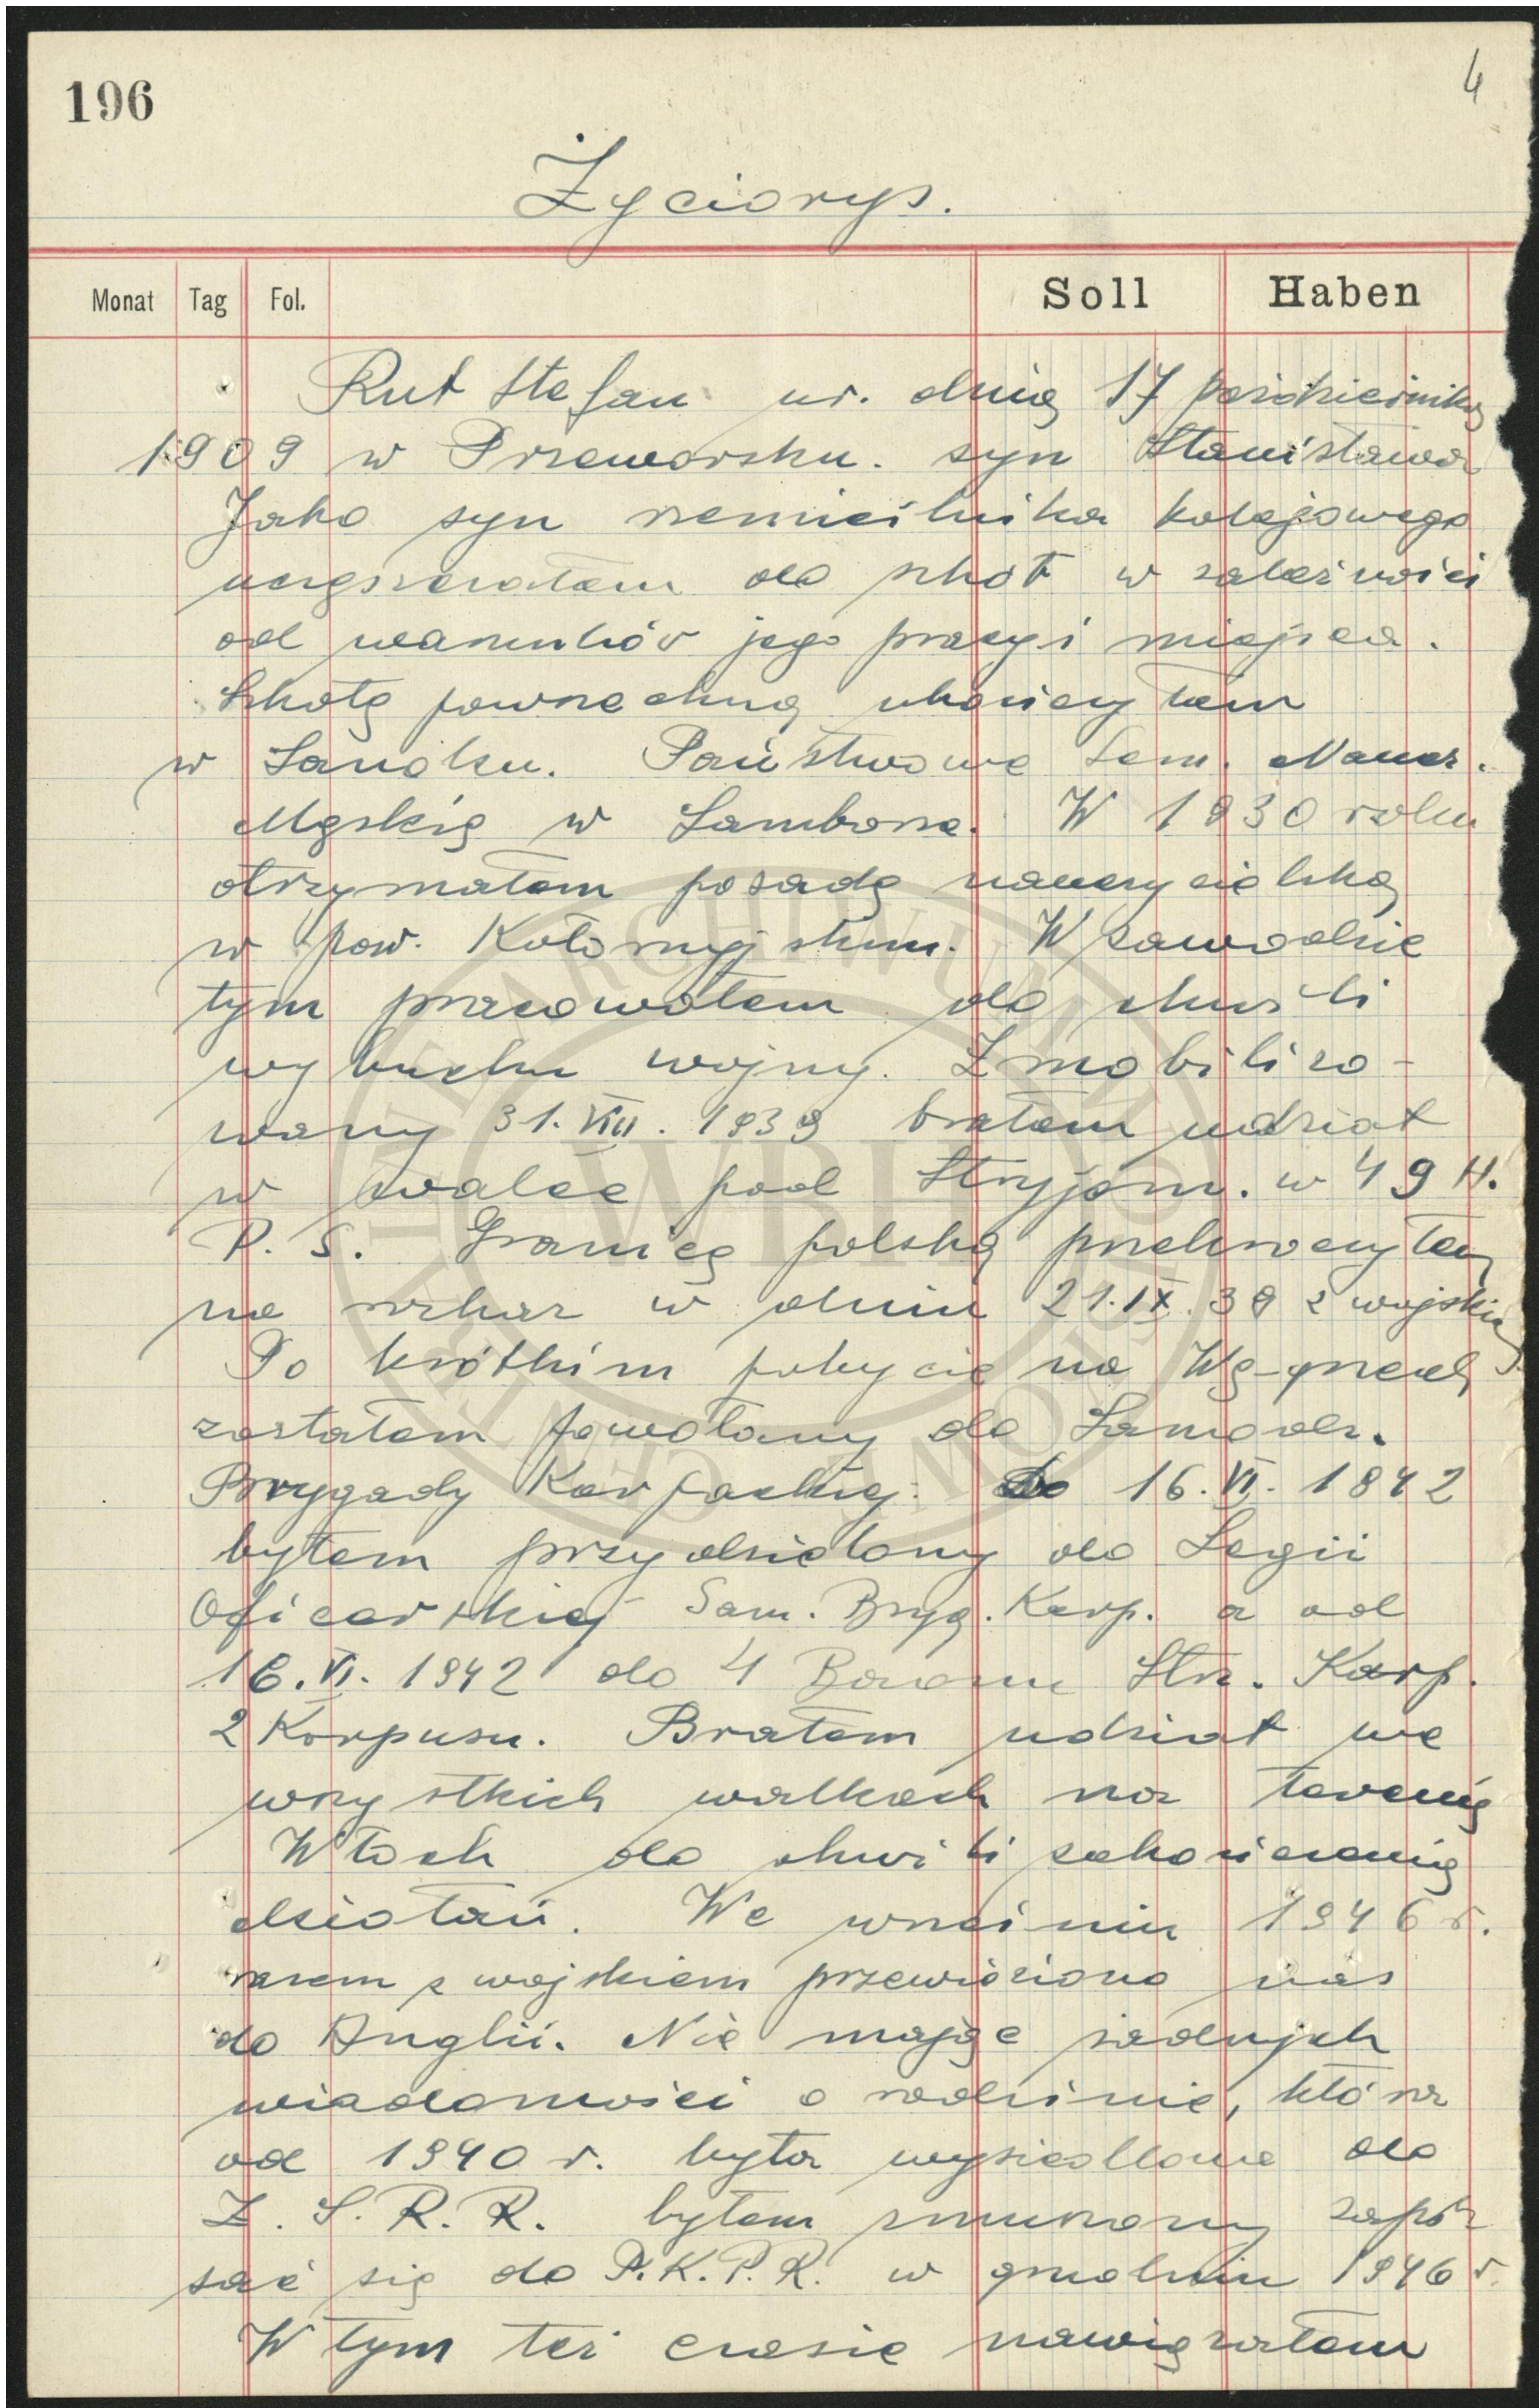 196
4
Życiorys.
Monat Tag Fol. Soll Haben
Rut Stefan ur. dnia 17 października
1909 w Przeworsku. syn Stanisława
Jako syn rzemieślnika kolejowego
uczęszczałem do szkół w zależności
od warunków jego pracy i miejsca.
Szkołę powszechną ukończyłem
w Sanoku. Państwowe Sem. Naucz.
Męskie w Samborze. W 1930 roku
otrzymałem posadę nauczycielską
w pow. Kołomyjskim. W zawodzie
tym pracowałem do chwili
wybuchu wojny. Zmobilizo-
wany 31.VIII.1939 brałem udział
w walce pod Stryjem. w 49 H.
P. S. Granicę polską przekroczyłem
na rozkaz w dniu 21.IX.39 z wojskiem
Po krótkim pobycie na Węgrzech
zostałem powołany do Samodz.
Brygady Karpackiej. Do 16.VI.1942
byłem przydzielony do Legii
Oficerskiej Sam. Bryg. Karp. a od
16.VI.1942 do 4 Baonu Strz. Karp.
2 Korpusu. Brałem udział we
wszystkich walkach na terenie
Włoch do chwili zakończenia
działań. We wrześniu 1946 r.
razem z wojskiem przewieziono nas
do Anglii. Nie mając żadnych
wiadomości o rodzinie, która
od 1940 r. była wysiedlona do
Z.S.R.R. byłem zmuszony zapi
sać się do P.K.P.R. w grudniu 1946 r.
W tym też czasie nawiązałem
ARCHIWUM
WBH